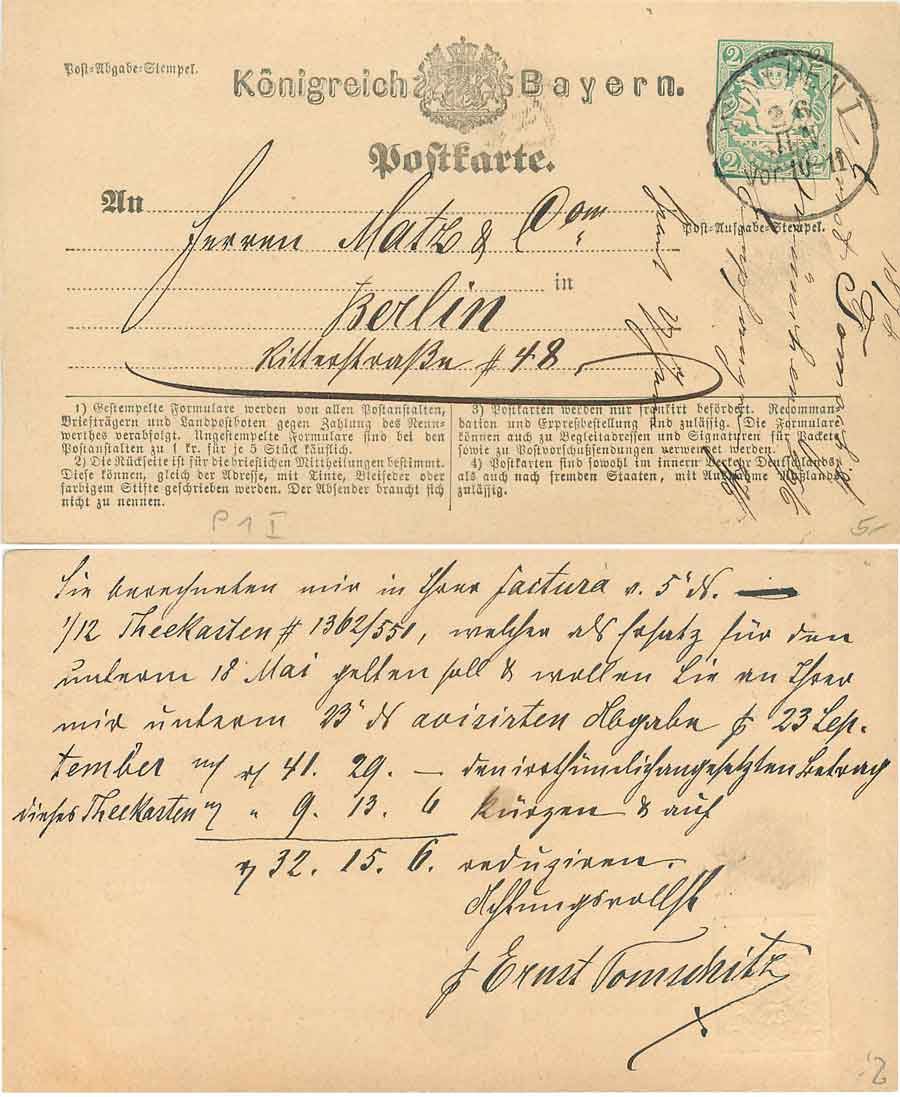 Post=Abgabe=Stempel.
Königreich Bayern.
2 2
2 2
MÜNCHEN I
Vor. 10-11
Postkarte.
An
Herren Matz & Com
Post=Ausgabe=Stempel.
in
Berlin
Ritterstraße # 48.
1) Gestempelte Formulare werden von allen Postanstalten,
Briefträgern und Landpostboten gegen Zahlung des Nenn-
werthes verabfolgt. Ungestempelte Formulare sind bei den
Postanstalten zu 1 kr. für je 5 Stück käuflich.
2) Die Rückseite ist für die brieflichen Mittheilungen bestimmt.
Diese können, gleich der Adresse, mit Tinte, Bleifeder oder
farbigem Stifte geschrieben werden. Der Absender braucht sich
nicht zu nennen.
3) Postkarten werden nur frankirt befördert. Recomman-
dation und Expreßbestellung sind zulässig. Die Formulare
können auch zu Begleitadressen und Signaturen für Packete
sowie zu Postvorschußsendungen verwendet werden.
4) Postkarten sind sowohl im innern Verkehr Deutschlands,
als auch nach fremden Staaten, mit Ausnahme Rußlands
zulässig.
P 1 I
5,-
Sie berechneten mir in Ihrer Factura v. 5 ds.
1/12 Theekasten # 1362/551, welcher als Ersatz für den
unterm 18 Mai gelten soll & wollen Sie an Ihrer
mir unterm 23 ds avisirten Abgabe p 23 Sep-
tember 41. 29. — den irrthümlich angesetzten Betrag
dieses Theekasten " 9. 13. 6 kürzen & auf
32. 15. 6. reduziren.
Achtungsvollst
p Ernst Tomschitz